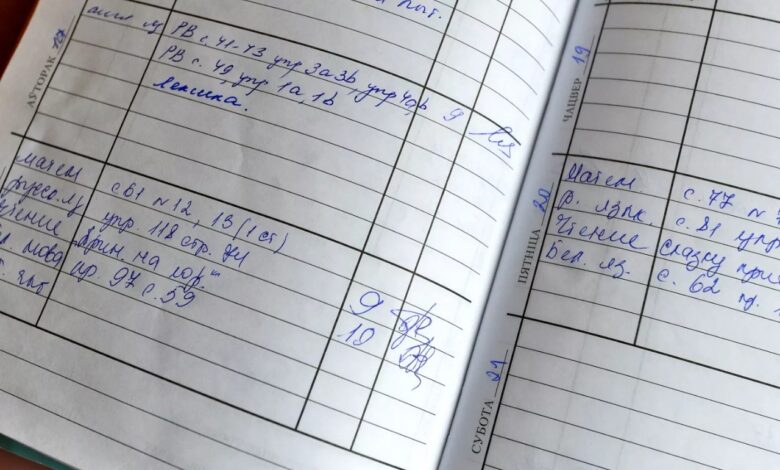 АЎТОРАК 17
англ яз РВ с. 41-43 упр 3а 3b, упр 4a, b
РВ с. 49, упр 1а, 1b 9
Лексика.
матем с. 61 № 12, 13 (1 ст)
русск. яз упр. 118 стр. 74
чтение на
мова пр. 97 с. 59 9
10
ЧАЦВЕР 19
ПЯТНІЦА 20
Матем с. 77 №
Р. язык. с. 81 упр
Чтение сказку
Бел. яз. с. 62 пр.
СУБОТА 21